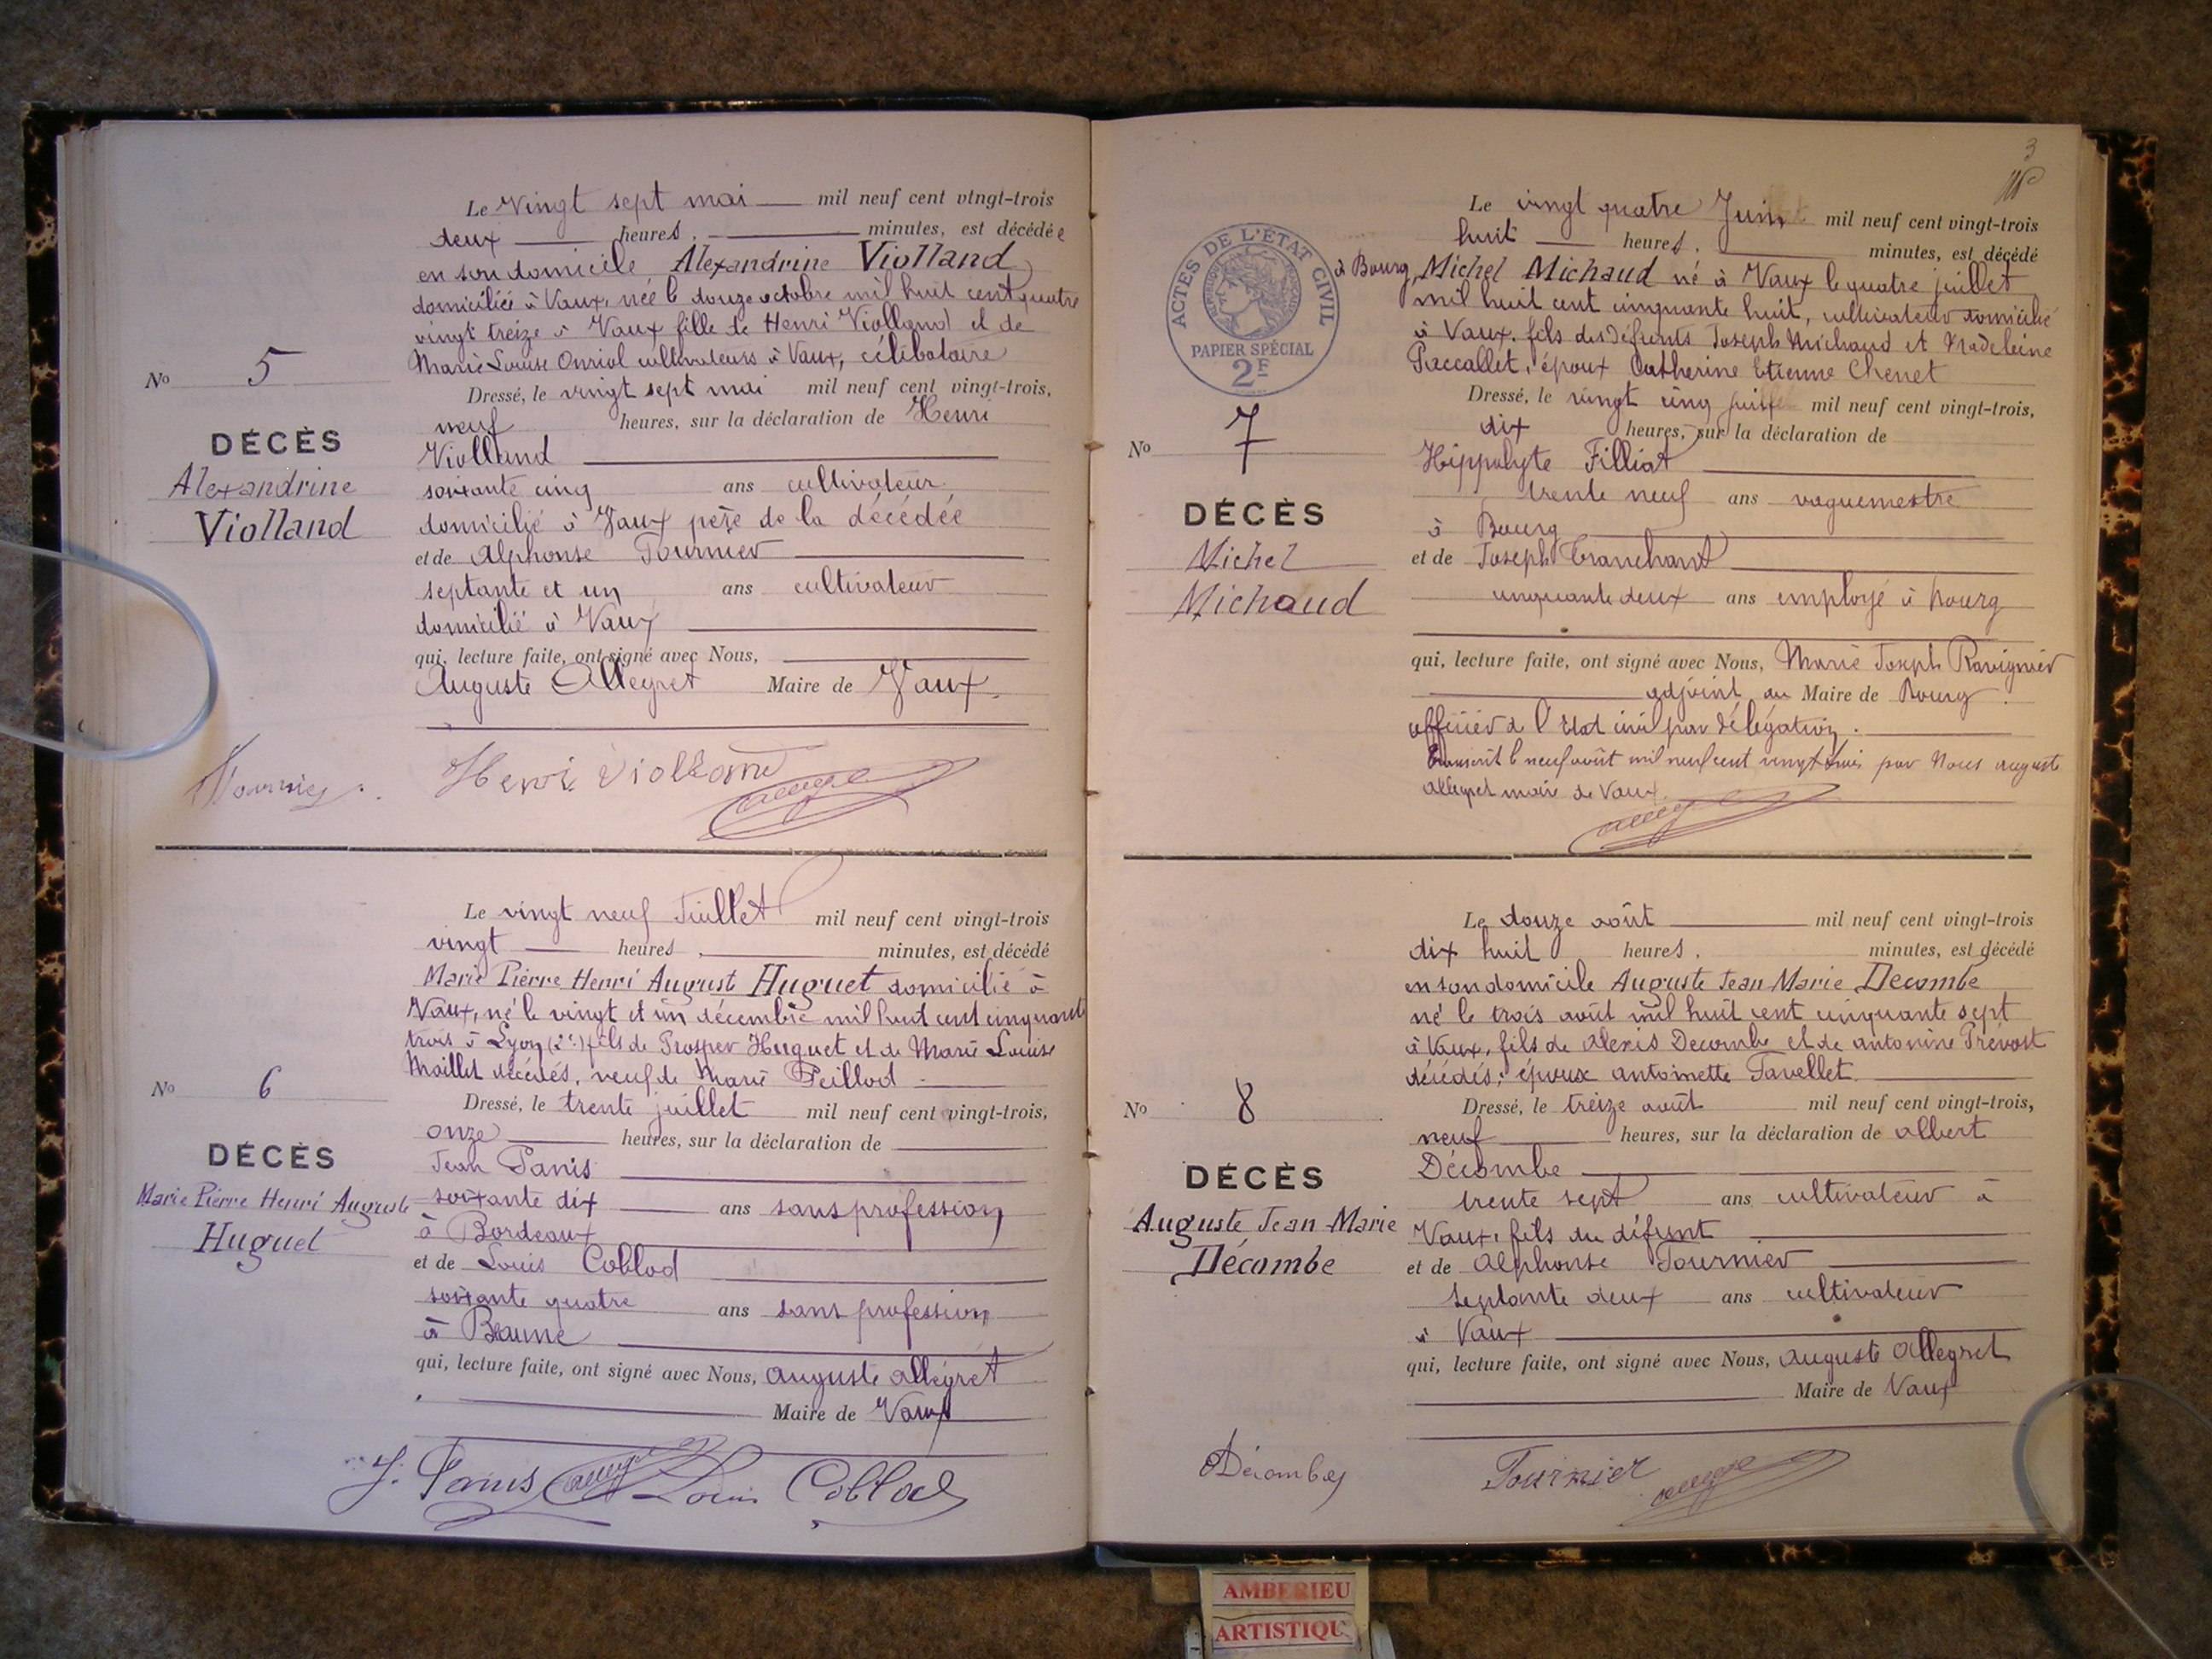 Le Vingt sept mai mil neuf cent vingt-trois
deux heures, minutes, est décédée
en son domicile Alexandrine Violland
domiciliée à Vaux, née le douze octobre mil huit cent quatre
vingt treize à Vaux fille de Henri Violland et de
Marie Louise Onriol cultivateurs à Vaux, célibataire
Dressé, le vingt sept mai mil neuf cent vingt-trois,
neuf heures, sur la déclaration de Henri
Violland
soixante cinq ans cultivateur
domicilié à Vaux père de la décédée
et de Alphonse Tournier
septante et un ans cultivateur
domicilié à Vaux
qui, lecture faite, ont signé avec Nous,
Auguste Allegret Maire de Vaux.
Nº 5
DÉCÈS
Alexandrine
Violland
Tournier
Henri Violland
Le vingt neuf Juillet mil neuf cent vingt-trois
vingt heures, minutes, est décédé
Marie Pierre Henri August Huguet domicilié à
Vaux, né le vingt et un décembre mil huit cent cinquante
trois à Lyon (2e) fils de Prosper Huguet et de Marie Louise
Maillet décédés, veuf de Marie Peillod
Dressé, le trente juillet mil neuf cent vingt-trois,
onze heures, sur la déclaration de
Jean Panis
soixante dix ans sans profession
à Bordeaux
et de Louis Coblod
soixante quatre ans sans profession
à Beaune
qui, lecture faite, ont signé avec Nous, Auguste Allégret
Maire de Vaux
Nº 6
DÉCÈS
Marie Pierre Henri Auguste
Huguet
J. Panis Louis Coblod
3
Le vingt quatre Juin mil neuf cent vingt-trois
huit heures, minutes, est décédé
à Bourg, Michel Michaud né à Vaux le quatre juillet
mil huit cent cinquante huit, cultivateur domicilié
à Vaux, fils des défunts Joseph Michaud et Madeleine
Paccallet, époux Catherine Etienne Chenet
Dressé, le vingt cinq mil neuf cent vingt-trois,
dix heures, sur la déclaration de
Hippolyte Filliat
trente neuf ans vaguemestre
à Bourg
et de Joseph Tranchant
cinquante deux ans employé à bourg
qui, lecture faite, ont signé avec Nous, Marie Joseph Ravignier
adjoint au Maire de Bourg.
officier de l'Etat civil par délégation.
Transcrit le neuf août mil neuf cent vingt trois par Nous Auguste
Allegret maire de Vaux
ACTES DE L'ÉTAT CIVIL
PAPIER SPÉCIAL
2F
Nº 7
DÉCÈS
Michel
Michaud
Le douze août mil neuf cent vingt-trois
dix huit heures, minutes, est décédé
en son domicile Auguste Jean Marie Decombe
né le trois août mil huit cent cinquante sept
à Vaux, fils de Alexis Decombe et de antonine Prévost
décédés; époux antoinette Favellet.
Dressé, le treize août mil neuf cent vingt-trois,
neuf heures, sur la déclaration de albert
Décombe
trente sept ans cultivateur à
Vaux, fils du défunt
et de Alphonse Tournier
septante deux ans cultivateur
à Vaux
qui, lecture faite, ont signé avec Nous, Auguste Allegret
Maire de Vaux
Nº 8
DÉCÈS
Auguste Jean Marie
Décombe
Décombes
Tournier
AMBERIEU
ARTISTIQU